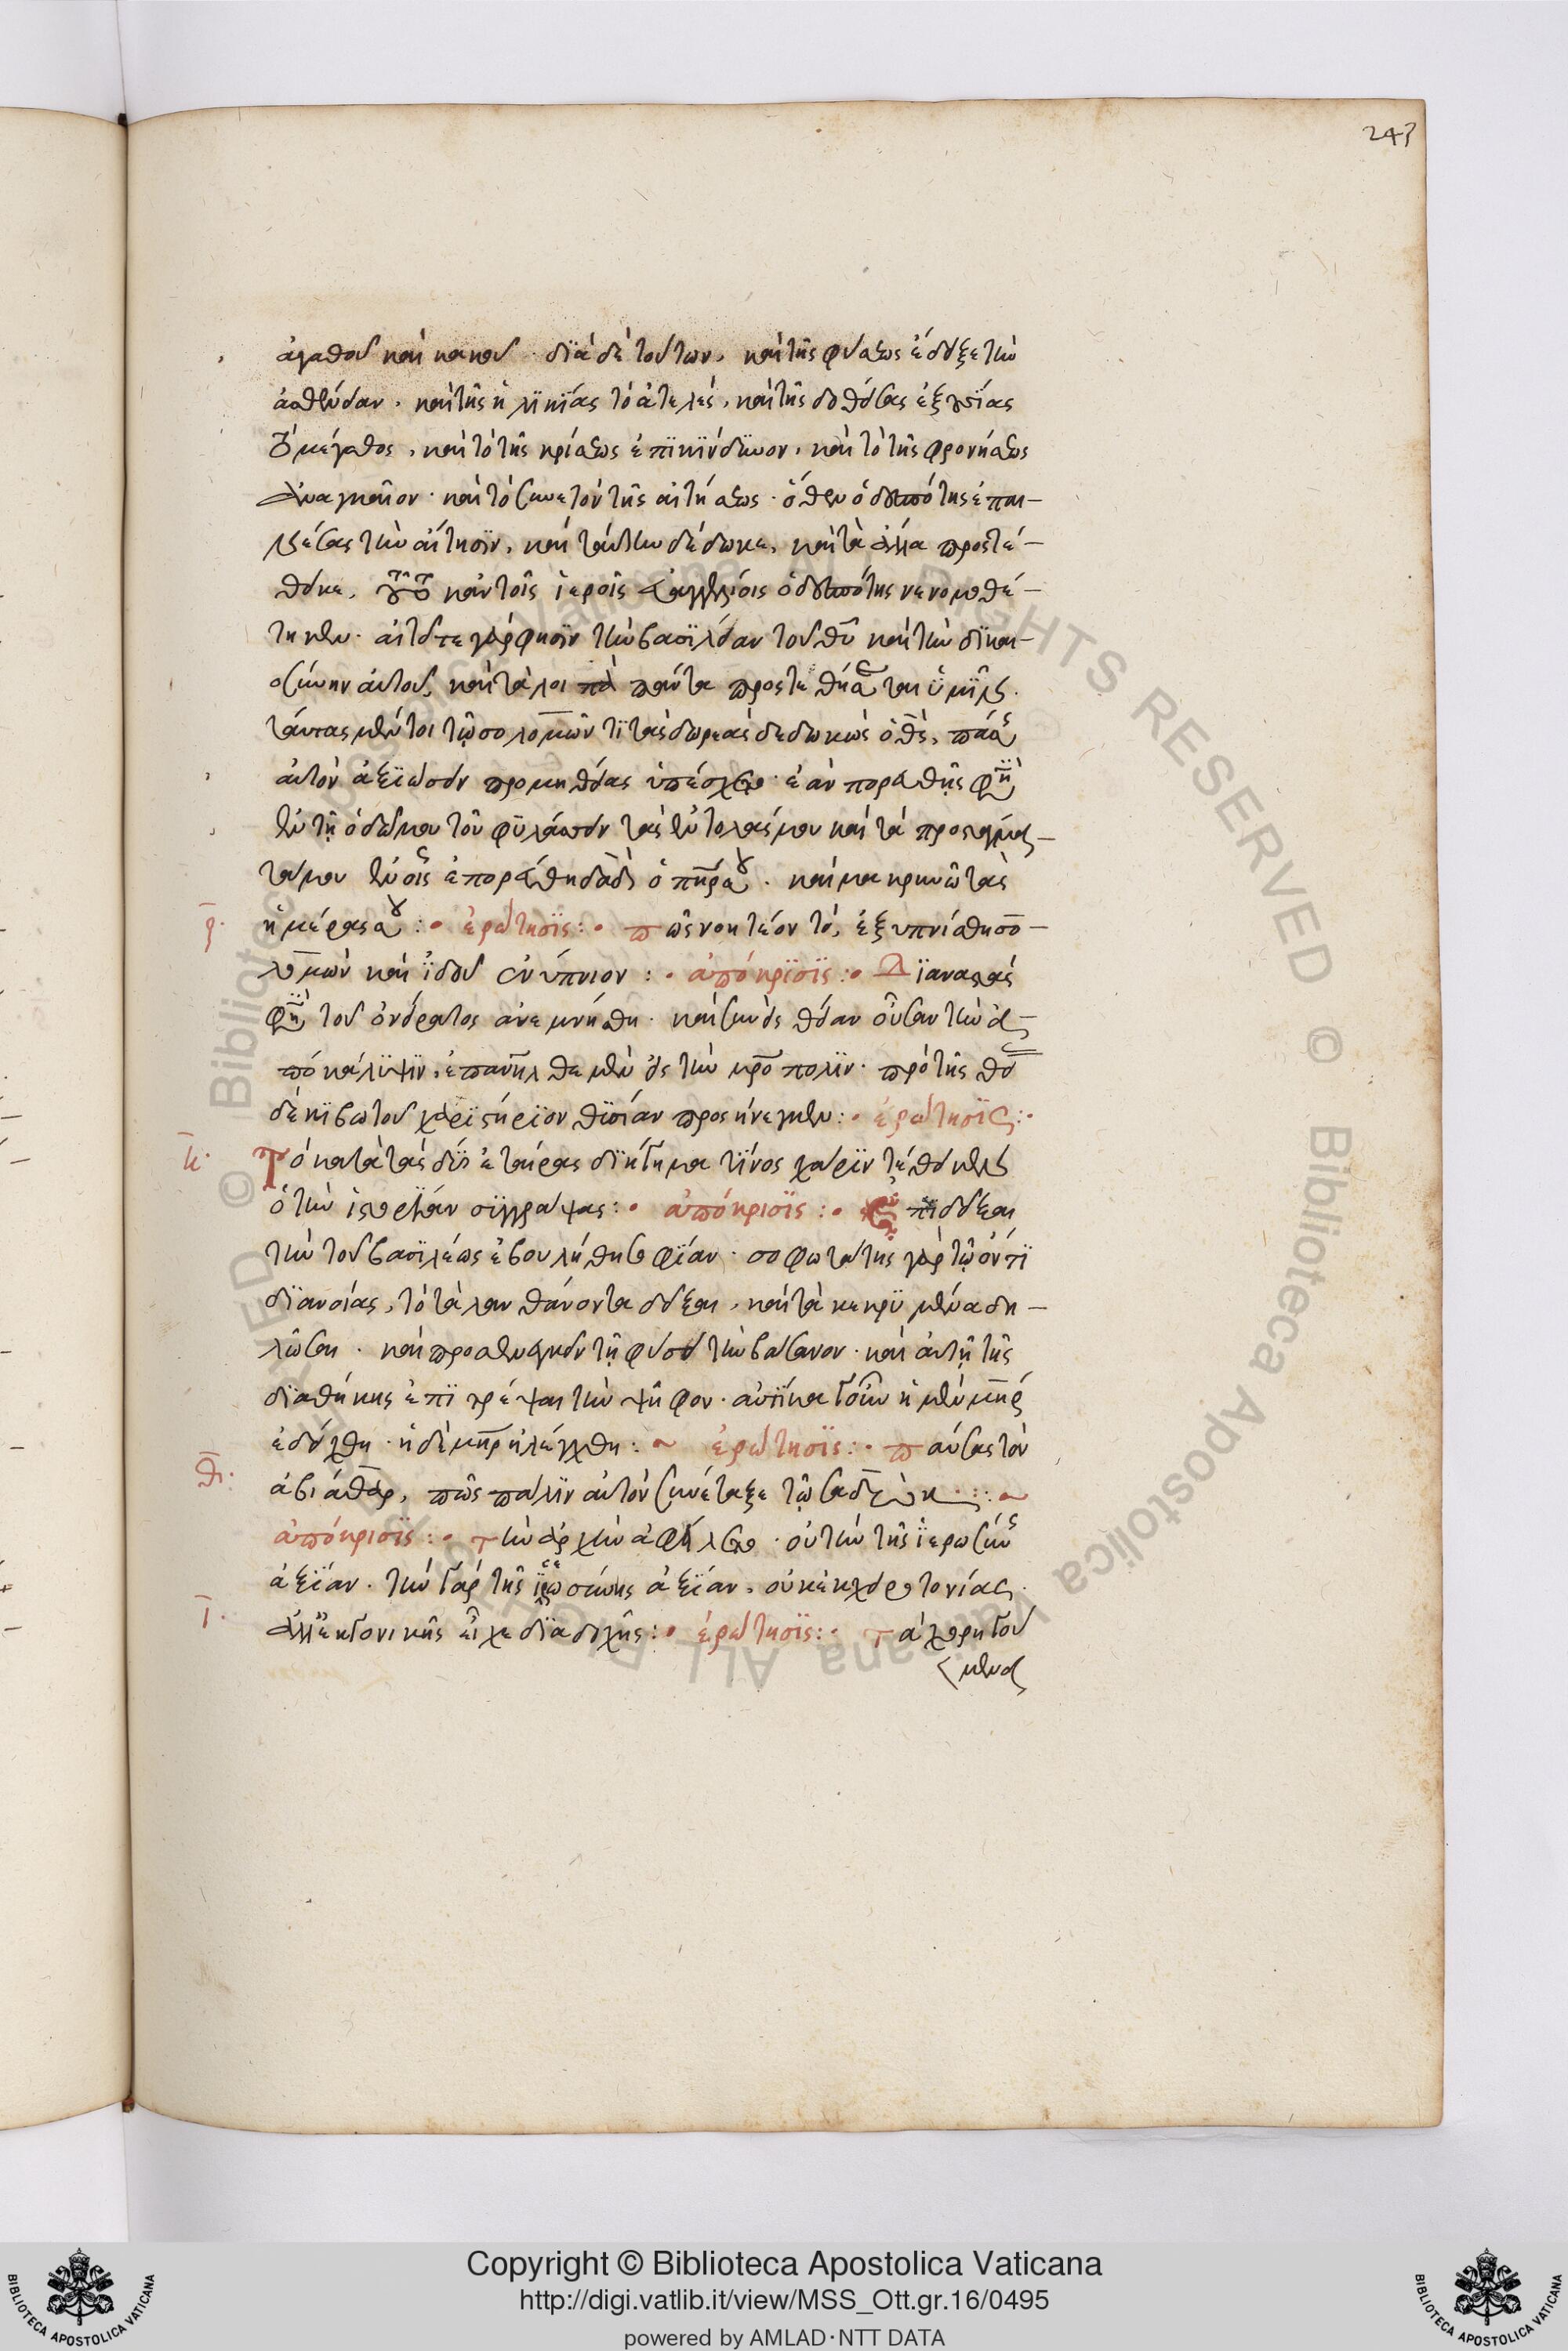 243
ἀγαθοῦ καὶ κακοῦ · διὰ δὲ τούτων, καὶ τῆς φύσεως ἔδειξε τὴν
ἀσθένειαν · καὶ τῆς ἡλικίας τὸ ἀτελές, καὶ τῆς δοθείσης ἐξουσίας
τὸ μέγεθος, καὶ τὸ τῆς κρίσεως ἐπικίνδυνον, καὶ τὸ τῆς φρονήσεως
ἀναγκαῖον · καὶ τὸ συνετὸν τῆς αἰτήσεως · ὅθεν ὁ δεσπότης ἐπαι-
νέσας τὴν αἴτησιν, καὶ ταύτην δέδωκε, καὶ τὰ ἄλλα προστέ-
θεικε, τοῦτο κἀν τοῖς ἱεροῖς εὐαγγελίοις ὁ δεσπότης νενομοθέ-
τηκεν · αἰτεῖτε γάρ φησιν τὴν βασιλείαν τοῦ θυ καὶ τὴν δικαι-
οσύνην αὐτοῦ, καὶ τὰ λοι πὰ πάντα προστεθήσεται ὑμῖν.
ταύτας μέντοι τῷ σολομῶντι τὰς δωρεὰς δεδωκὼς ὁ θς, πάσης
αὐτὸν ἀξιώσειν προμηθείας ὑπέσχετο · ἐὰν πορευθῇς φησὶ
ἐν τῇ ὁδῷ μου τοῦ φυλάσσειν τὰς ἐντολάς μου καὶ τὰ προστάγμα-
τά μου ἐν οἷς ἐπορεύθη δαδ ὁ πηρ σου · καὶ μακρυνῶ τὰς
ἡμέρας σου :· ἐρώτησις :· πῶς νοητέον τό, ἐξυπνίσθη σο-
λομὼν καὶ ἰδοὺ ἐνύπνιον :· ἀπόκρισις :· Διαναστὰς
φησὶ τοῦ ὀνείρατος ἀνεμνήσθη · καὶ συνεὶς θείαν οὖσαν τὴν ἀ-
ποκάλυψιν, ἐπανῆλθε μὲν εἰς τὴν μρο πολιν · πρὸ τῆς θεί
δὲ κιβωτοῦ χαριστήριον θυσίαν προσήνεγκεν :· ἐρώτησις :·
Τὸ κατὰ τὰς δύο ἑταίρας διήγημα τίνος χάριν τέθεικεν
ὁ τὴν ἱστορίαν συγγράψας :· ἀπόκρισις :· ἐπιδεῖξαι
τὴν τοῦ βασιλέως ἐβουλήθη σοφίαν · σοφωτάτης γὰρ τῷ ὄντι
διανοίας, τὸ τὰ λανθάνοντα δεῖξαι, καὶ τὰ κεκρυμμένα δη-
λῶσαι · καὶ προσενεγκεῖν τῇ φύσει τὴν βάσανον · καὶ αὐτῇ τῆς
διαθήκης ἐπιτρέψαι τὴν ψῆφον · αὐτίκα γοῦν ἡ μὲν μηρ
ἐδείχθη · ἡ δὲ μηρ ἠλέγχθη :~ ἐρώτησις :· παύσας τὸν
ἀβιάθαρ, πῶς πάλιν αὐτὸν συνέταξε τῷ σαδώκ ·:~
ἀπόκρισις :· τὴν ἀρχὴν ἀφείλετο · οὐ τὴν τῆς ἱερωσύνης
ἀξίαν · τὴν γὰρ τῆς ἱερωσύνης ἀξίαν, οὐκ ἐκ χειροτονίας
ἀλλ' ἐκ γονικῆς εἶχε διαδοχῆς :· ἐρώτησις :· τὰ χορηγού
μενα
ζ·
η·
θ·
ι·
Copyright © Biblioteca Apostolica Vaticana
http://digi.vatlib.it/view/MSS_Ott.gr.16/0495
powered by AMLAD·NTT DATA
BIBLIOTECA APOSTOLICA VATICANA
BIBLIOTECA APOSTOLICA VATICANA